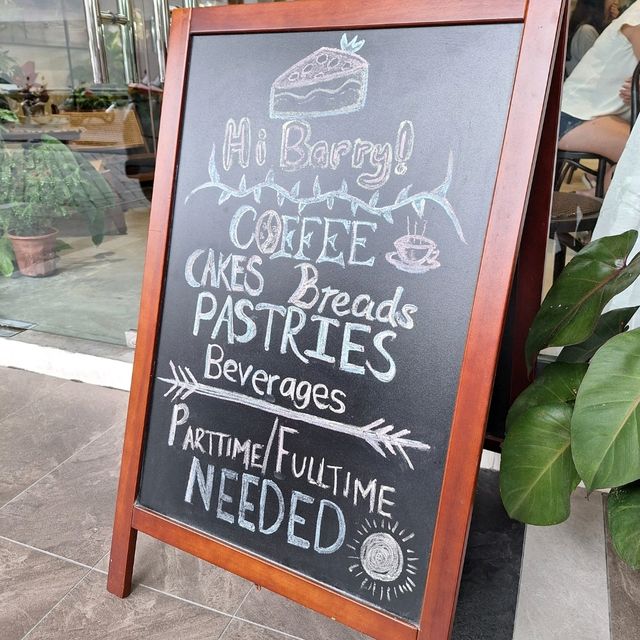 Hi Barry!
COFFEE
CAKES Breads
PASTRIES
Beverages
PARTTIME/FULLTIME
NEEDED